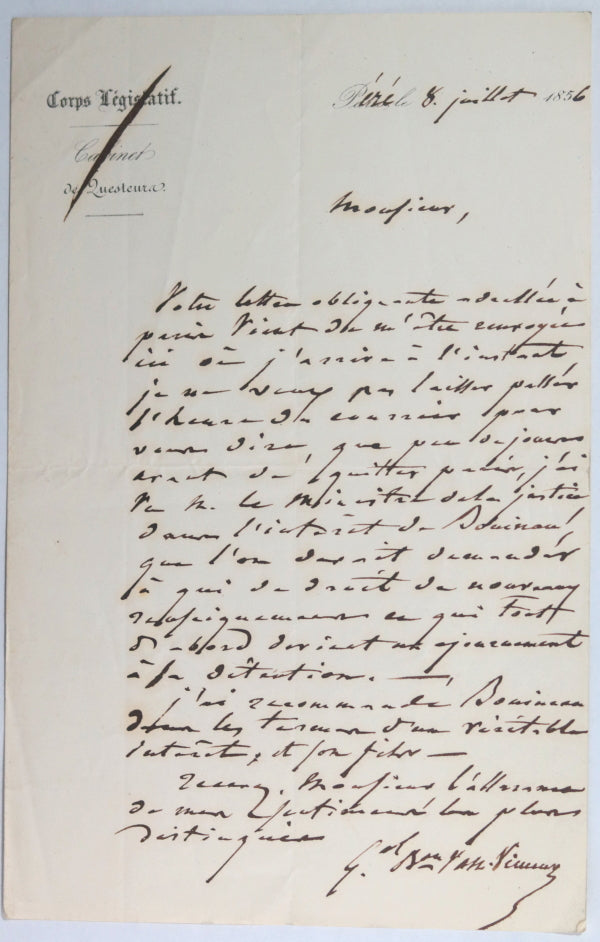 Corps Législatif.
Cabinet
de Questeurs.
Péré le 8. juillet 1856
Monsieur,
Votre lettre obligeante adressée à
paris vient de m'être renvoyée
ici où j'arrive à l'instant
je ne veux pas laisser passer
l'heure du courrier pour
vous dire, que peu de jours
avant de quitter paris, j'ai
vu M. le Ministre de la justice
dans l'intérêt de Bouineau,
que l'on devait demander
à qui de droit de nouveaux
renseignements ce qui tout
d'abord devient un ajournement
à sa détention. —
j'ai recommandé Bouineau
dans les termes d'un véritable
intérêt, et son frère —
recevez, Monsieur l'assurance
de mes sentiments les plus
distingués
G.al Bon Vast-Vimeux